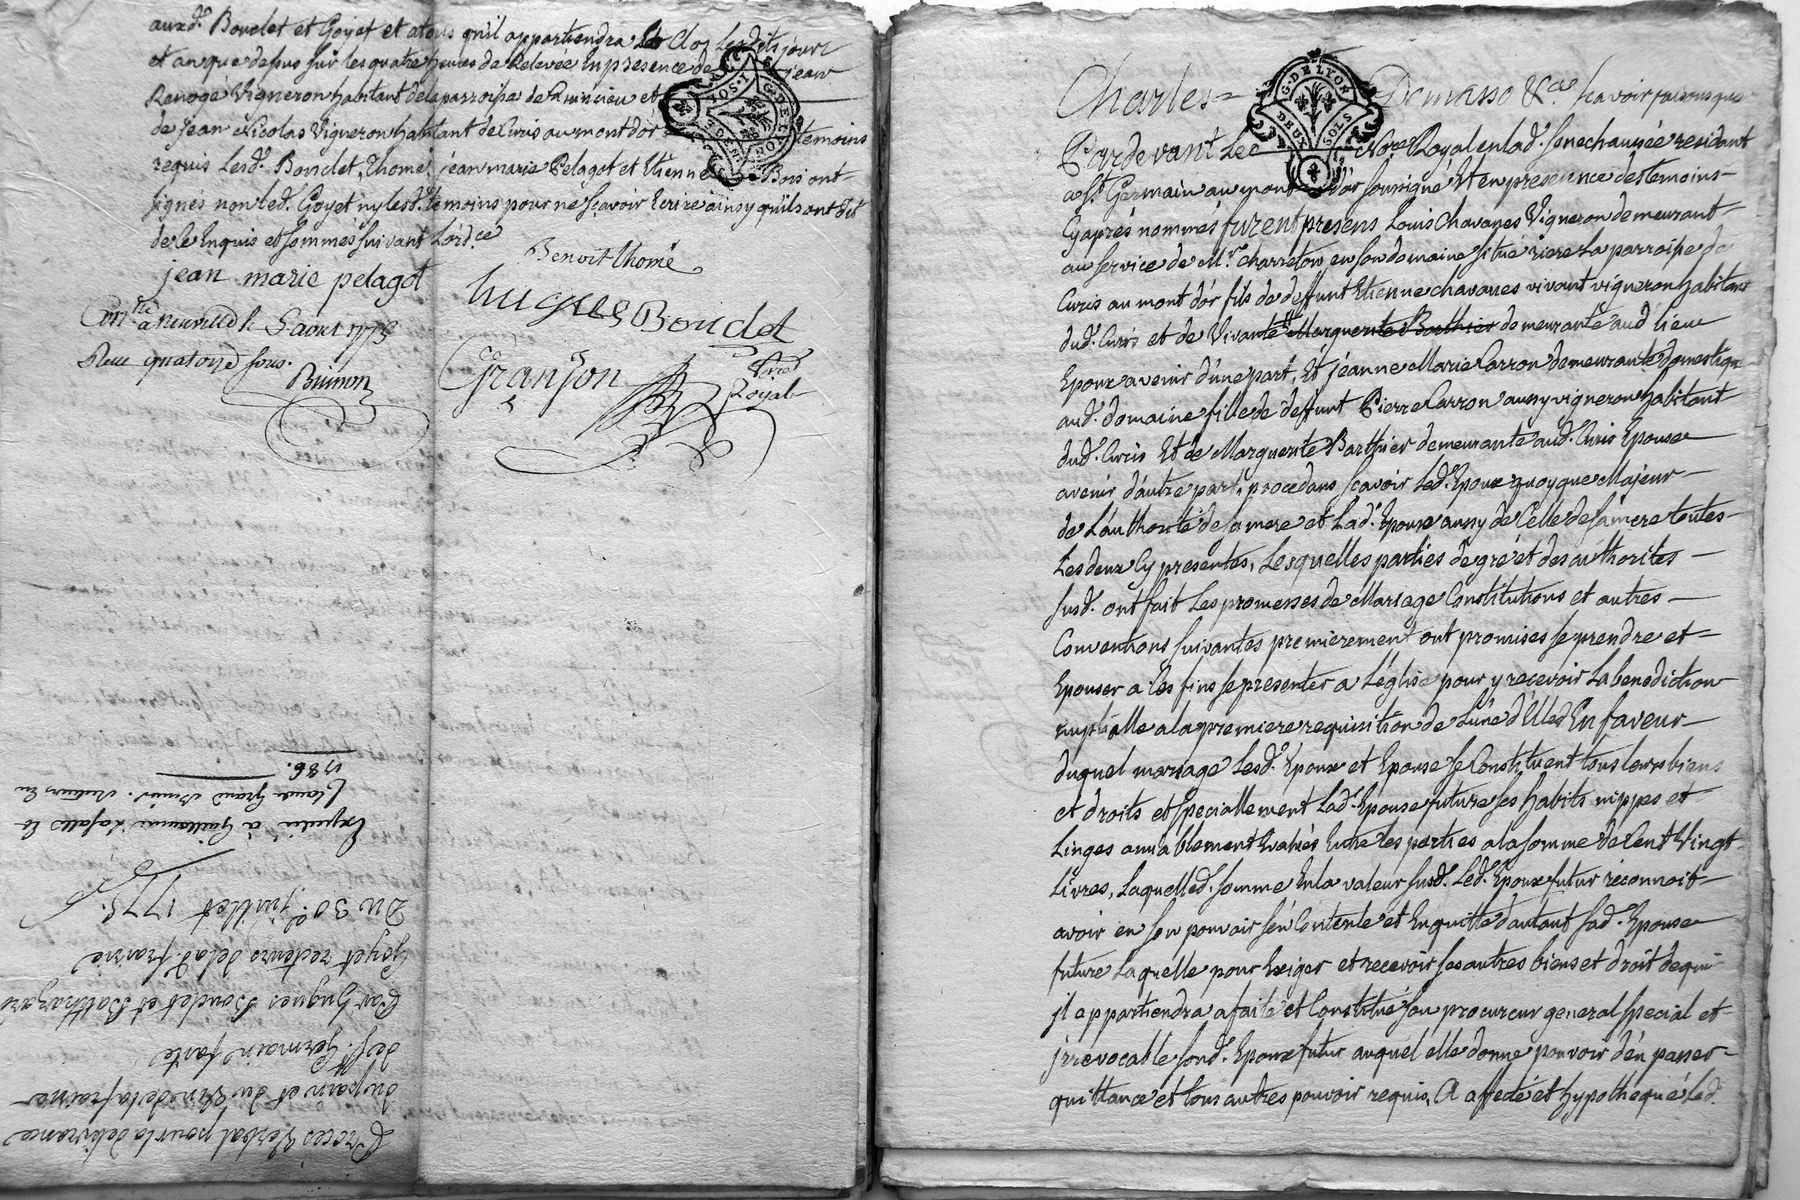 auxd. Bouclet et Goyet et atous qu'il appartiendra Clos Lesdits jour
et an que dessus sur les quatre heures de Relevée En presence de jean
Renogé Vigneron habitant dela parroisse de et
de Jean Nicolas Vigneron habitant de Curis au mont dor temoins
requis Lesd. Bouclet, Thomé, jean marie Pelagot et Etienne Bois ont
signés non led. Goyet ny lesd. temoins pour ne sçavoir Ecrire ainsy quils ont dit
de ce Enquis et sommés suivant Lord.ce
jean marie pelagot
Benoit thomé
hugues Bouclet
Con.lé a neuville le 5 aout 1775
Reçu quatorze sous.
Brimon
Granjon
Nre Royal
Proces Verbal pour la delivrance
du pain et du Vin de la frairie
de St. Germain faite
Par hugues Bouclet et Balthazard
Goyet recteurs de lad. frairie
Du 30e. juillet 1775.
Expedié à Guillaume Lafalle et
Claude Grand
1786.
G. DE LYON
DEUX SOLS
Charles Demasso &ca sçavoir faisons que
Pardevant Le Nore Royal en lad. senechaussée residant
a St. Germain au mont d'or soussigné Et en presence des temoins
Cyaprès nommés furent presens Louis Chavanes Vigneron demeurant
au service de Mr. Charreton en son domaine situé riere La parroisse de
Curis au mont d'or fils de deffunt Etienne chavanes vivant vigneron habitant
dud. Curis et de Vivante Marguerite Barthier demeurante aud. lieu
Epoux avenir d'une part, Et jeanne Marie Carron demeurante domestique
aud. domaine fille de deffunt Pierre Carron aussy vigneron habitant
dud. Curis Et de Marguerite Barthier demeurante aud. Curis Epouse
avenir d'autre part, procedans sçavoir Led. Epoux quoyque Majeur
de L'authorité de sa mere et Lad. Epouse aussy de Celle de sa mere toutes
Les deux Cy presentes, Lesquelles parties de gré et des authorités
susd. ont fait Les promesses de Mariage Constitutions et autres
Conventions suivantes premierement ont promises se prendre et
Epouser a Ces fins se presenter a L'église pour y recevoir La benediction
nuptialle a la premiere requisition de L'une d'Elles En faveur
duquel mariage Lesd. Epoux et Epouse se Constituent tous leurs biens
et droits et speciallement Lad. Epouse future ses habits nippes et
Linges amiablement Evalués Entre les parties a la somme de Cent Vingt
Livres, Laquelled. somme En la valeur susd. Led. Epoux futur reconnoit
avoir en son pouvoir s'en Contente et En quitte d'autant sad. Epouse
future Laquelle pour Exiger et recevoir ses autres biens et droit de qui
il appartiendra a fait et Constitué son procureur general special et
jrrevocable sond. Epoux futur auquel elle donne pouvoir d'en passer
quittance et tous autres pouvoir requis, A affecté et hypothequé Led.